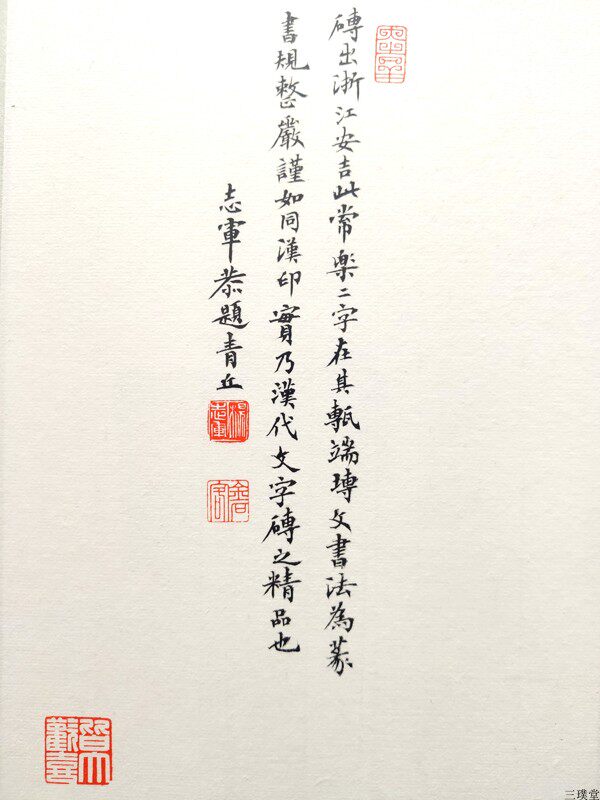 磚出浙江安吉此常樂二字在其甎端磚文書法為篆
書規整嚴謹如同漢印實乃漢代文字磚之精品也
志軍恭題青丘
楊志軍
皆大歡喜
三璞堂